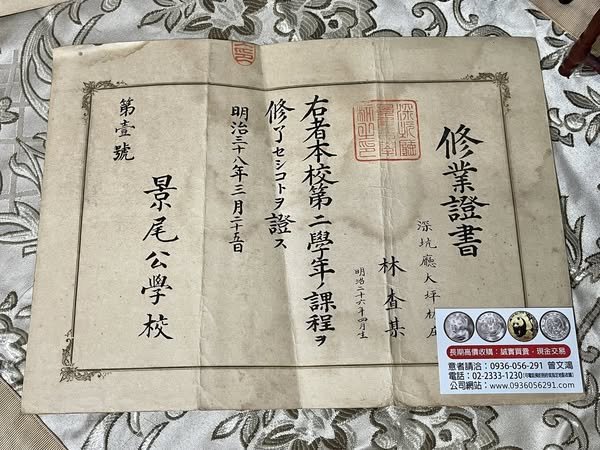 修業證書
深坑廳大坪林庄
林查某
明治二十六年四月生
右者本校第二學年ノ課程ヲ
修了セシコトヲ證ス
明治三十八年三月二十五日
景尾公學校
第壹號
長期高價收購：誠實買賣，現金交易
意者請洽：0936-056-291 曾文鴻
電話：02-2333-1230
公司網站：www.0936056291.com